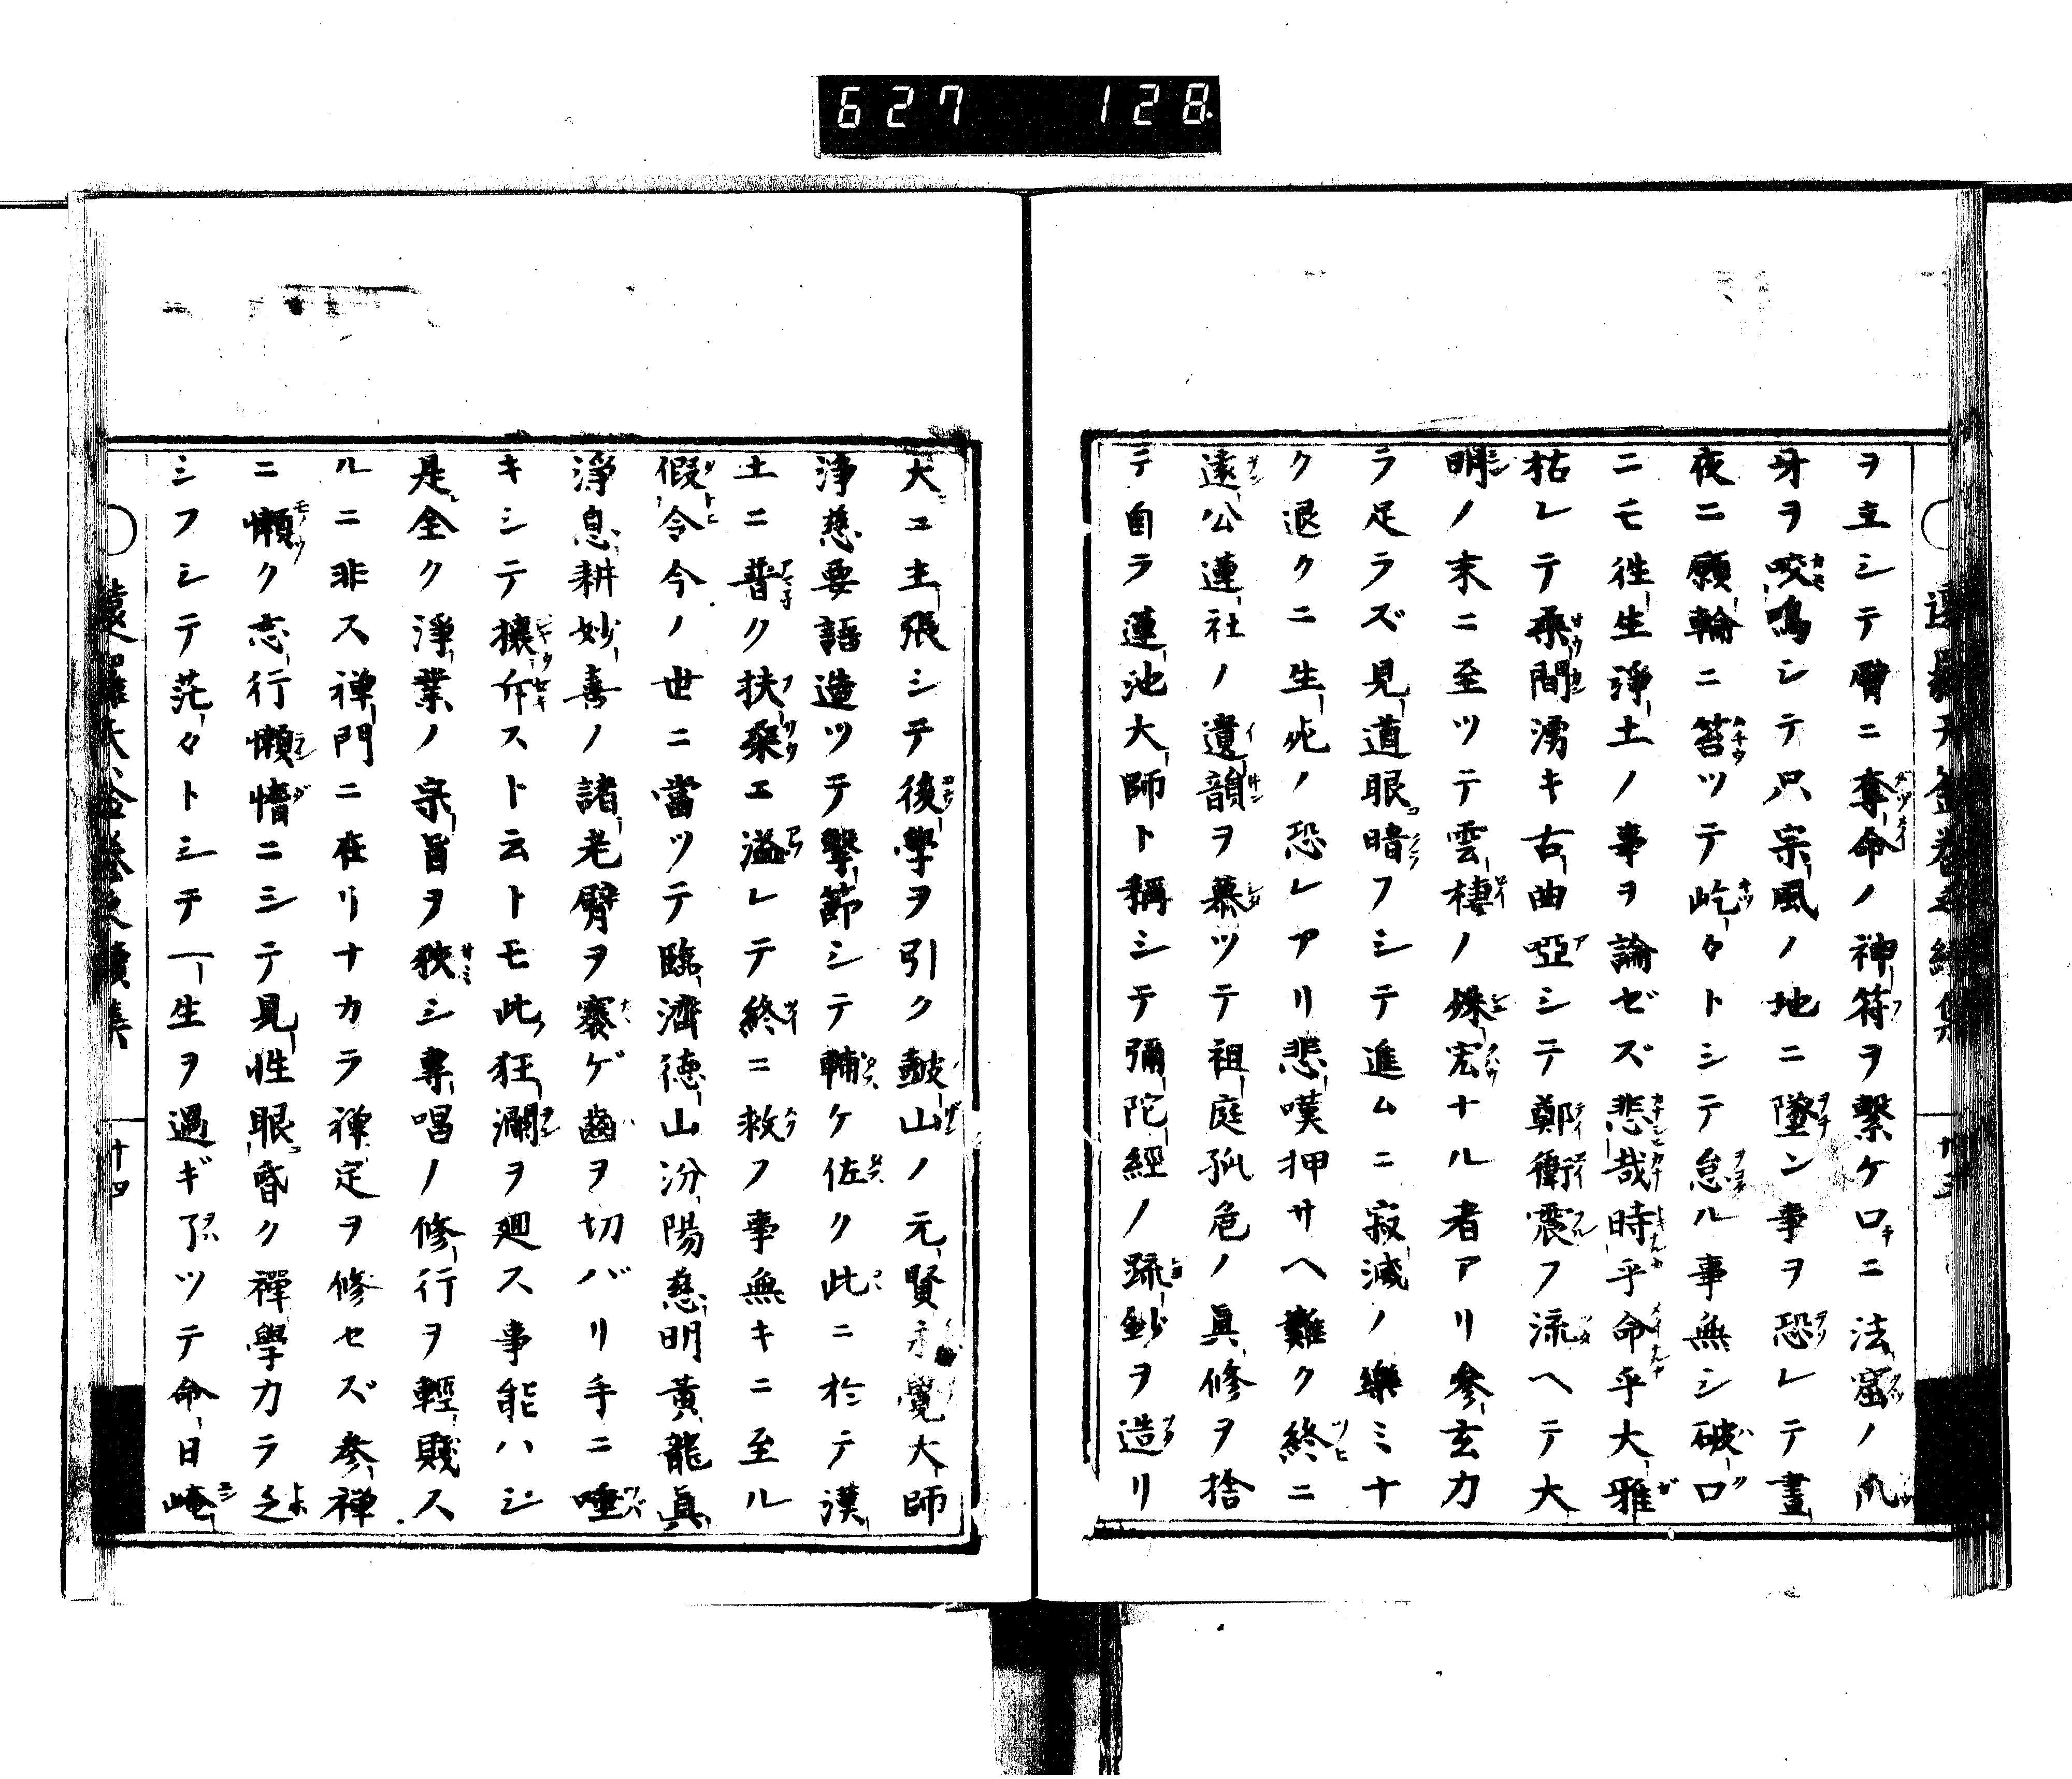 627 128
ヲ立シテ臂ニ奪命ノ神符ヲ繋ケ口ニ法窟ノ爪
牙ヲ咬鳴シテ只宗風ノ地ニ墜ン事ヲ恐レテ晝
夜ニ願輪ニ笞ツテ屹々トシテ怠ル事無シ破口
ニモ徃生淨土ノ事ヲ論ゼズ悲哉時乎命乎大雅
枯レテ桑間湧キ古曲啞シテ鄭衛震フ流ヘテ大
明ノ末ニ至ツテ雲棲ノ殊宏ナル者アリ參玄力
ラ足ラズ見道眼暗フシテ進ムニ寂滅ノ樂ミナ
ク退クニ生死ノ恐レアリ悲嘆押サヘ難ク終ニ
遠公蓮社ノ遺韻ヲ慕ツテ祖庭孤危ノ眞修ヲ捨
テ自ラ蓮池大師ト稱シテ彌陀經ノ疏鈔ヲ造リ
十三
大ニ主張シテ後學ヲ引ク皷山ノ元賢永覺大師
淨慈要語造ツテ擊節シテ輔ケ佐ク此ニ於テ漢
土ニ普ク扶桑エ溢レテ終ニ救フ事無キニ至ル
假令今ノ世ニ當ツテ臨濟德山汾陽慈明黃龍眞
淨息耕妙喜ノ諸老臂ヲ褰ゲ齒ヲ切バリ手ニ唾
キシテ攘斥スト云トモ此狂瀾ヲ廻ス事能ハジ
是全ク淨業ノ宗旨ヲ狹シ專唱ノ修行ヲ輕賤ス
ルニ非ス禅門ニ在リナカラ禅定ヲ修セズ參禅
ニ懶ク志行懶惰ニシテ見性眼昏ク禪學力ラ乏
シフシテ茫々トシテ一生ヲ過ギ了ツテ命日崦
十四